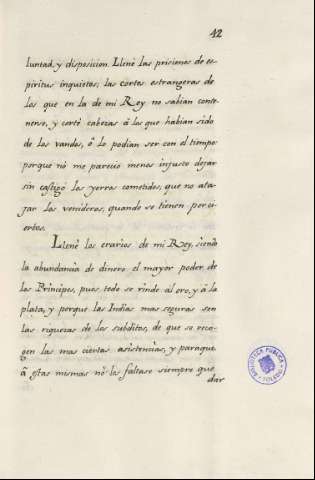 42
luntad, y disposicion. Llené las prisiones de es-
piritus inquietos; las cortes estrangeras de
los que en la de mi Rey no sabian conte-
nerse, y corté cabezas à los que habian sido
de los vandos, ô lo podian ser con el tiempo:
porque nò me pareciò menos injusto dejar
sin castigo los yerros cometidos, que no ata-
jar los venideros, quando se tienen por ci-
ertos.
Llené los erarios de mi Rey, siendo
la abundancia de dinero el mayor poder de
los Principes, pues todo se rinde al oro, y à la
plata, y porque las Indias mas seguras son
las riquezas de los subditos, de que se reco-
gen las mas ciertas asistencias, y paraque
â estas mismas nô las faltase siempre que
dar
BIBLIOTECA PUBLICA
TOLEDO